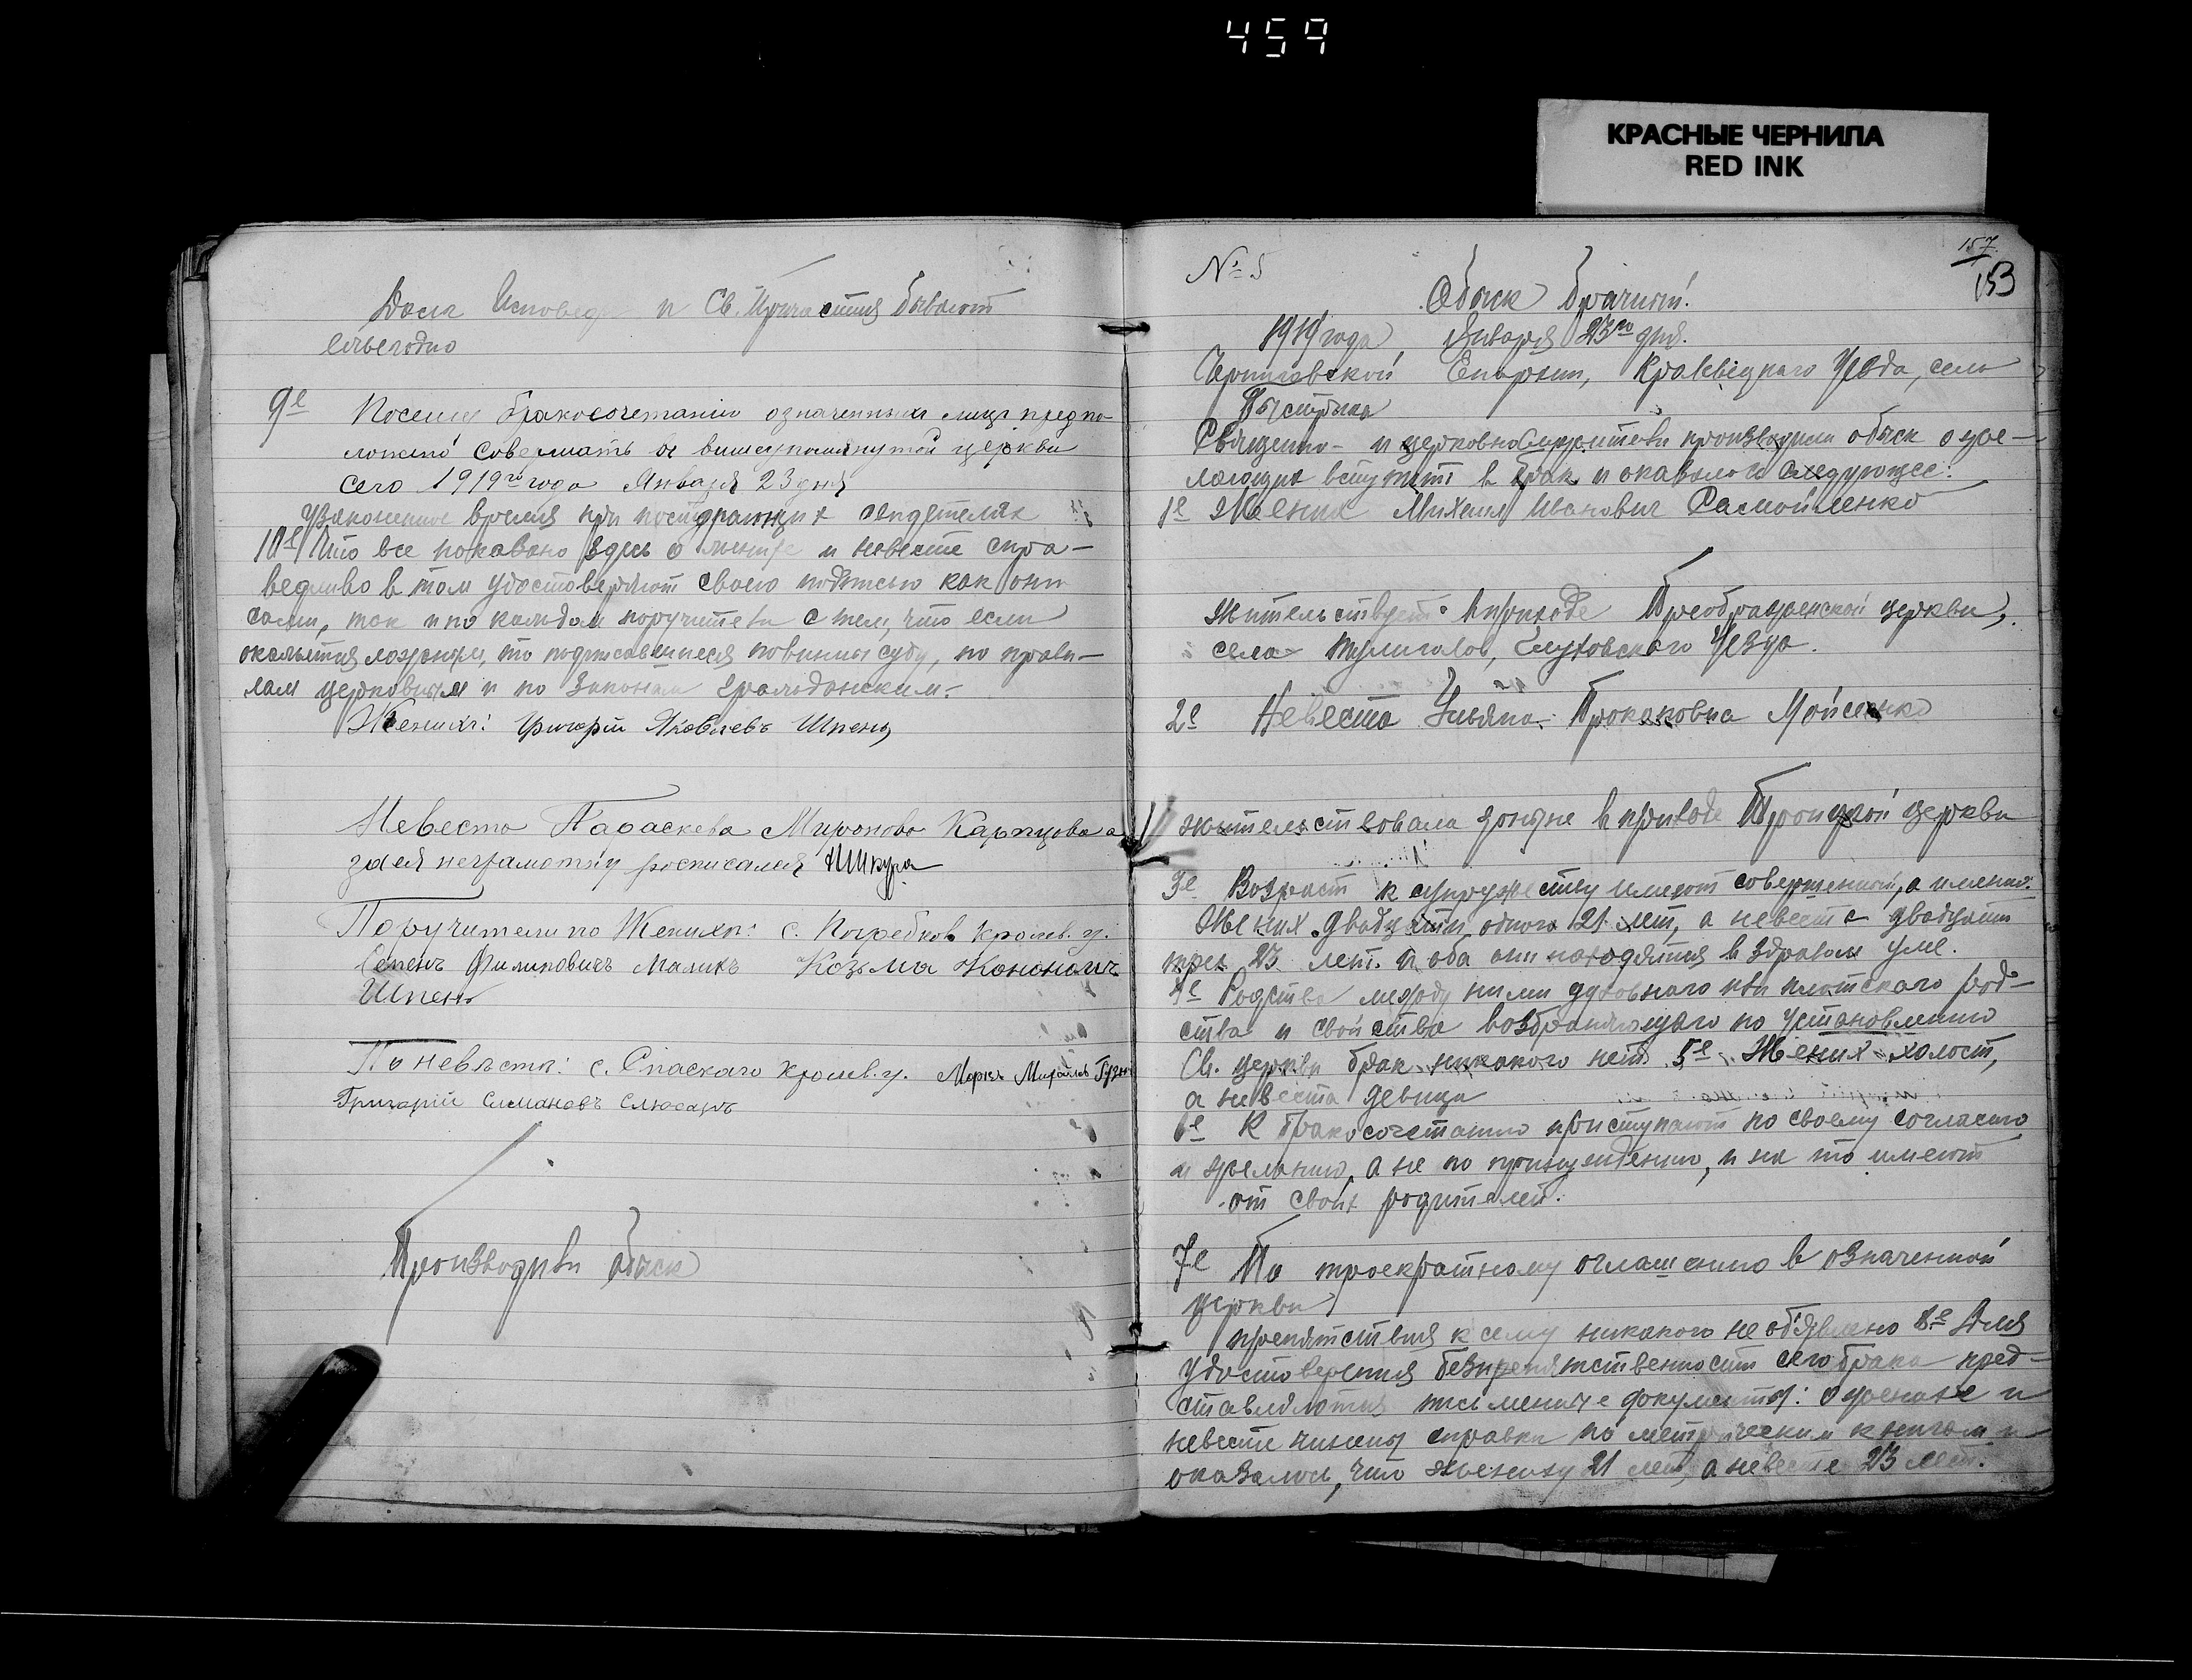 459
КРАСНЫЕ ЧЕРНИЛА
RED INK
Исповеди и Св. Причастия бывают
ежегодно
9е Посему бракосочетанию означенных лиц предпо-
ложено совершать в вышеупомянутой церкви
сего 1919го года Января 23 дня
узаконенное время при посторонних свидетелях
10е Что все показано здесь о женихе и невесте спра-
ведливо в том удостоверяют своею подписью как они
сами, так и по каждом поручители с тем, что если
окажется ложным, то подписавшиеся повинны суду, по прави-
лам церковным и по законам гражданским.
Женихъ: Григорій Яковлевъ Шпень
Невеста Параскева Миронова Карпцова а
за ея неграмотну росписался Шкура
Поручители по Женихѣ: с. Погребков Кролев. у.
Семенъ Филиповичъ Маликъ Козьма Кононычъ
Шпень
По невѣстѣ: с. Спаскаго Кролев. у. Марко
Григорій Симановъ Слюсаръ
Производили обыск
157
153
№ 5
Обыск брачный.
1919 года Января 23го дня.
Черниговской Епархии, Кролевецкаго Уезда, села
Быстрика
Священно- и церковнослужители производили обыск о же-
лающих вступить в брак и оказалось следующее:
1е Жених Михаил Иванович Самойленко
жительствует в приходе Преображенской церкви,
села Тулиголов, Глуховскаго Уезда.
2е Невеста Ульяна Прокоповна Мойсеенко
жительствовала доныне в приходе Троицкой церкви
3е Возраст к супружеству имеют совершенный, а именно:
Жених двадцати одного 21 лет, а невеста двадцати
трех 23 лет. и оба они находятся в здравом уме.
4е Родства между ними духовнаго или плотскаго род-
ства и свойства возбраняющаго по установлению
Св. церкви брак никакого нет. 5е Жених холост,
а невеста девица
6е К бракосочетанию приступают по своему согласию
и желанию, а не по принуждению, и на то имеют
от своих родителей.
7е По троекратному оглашению в означенной
церкви
препятствия к сему никакого не объявлено 8е Для
удостоверения безпрепятственности сего брака пред-
ставляются письменные документы: о женихе и
невесте чинены справки по метрическим книгам и
оказалось, что жениху 21 лет, а невесте 23 лет.